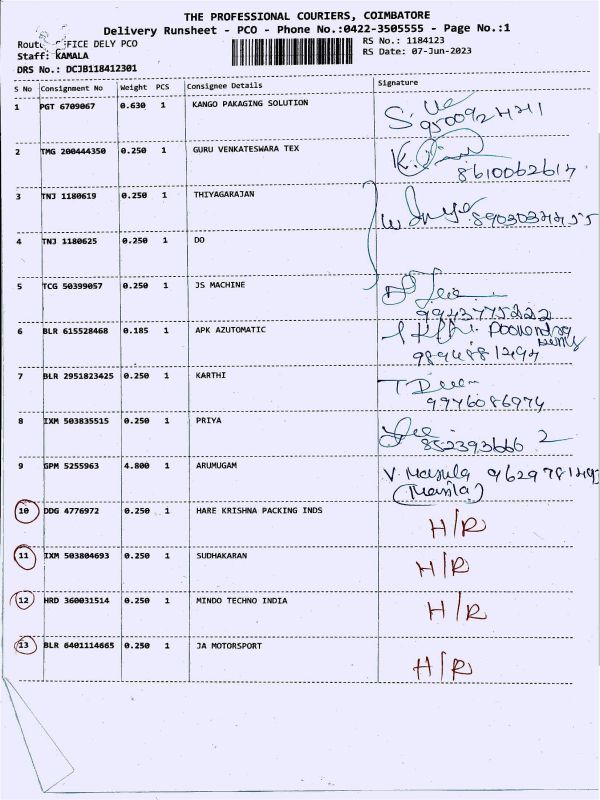 THE PROFESSIONAL COURIERS, COIMBATORE
Delivery Runsheet - PCO - Phone No.:0422-3505555 - Page No.:1
FICE DELY PCO RS No.: 1184123
Staff: KAMALA RS Date: 07-Jun-2023
DRS No.: DCJB118412301
S No Consignment No Weight PCS Consignee Details Signature
1 PGT 6709067 0.630 1 KANGO PAKAGING SOLUTION
2 TMG 200444350 0.250 1 GURU VENKATESWARA TEX
8610062617
3 TNJ 1180619 0.250 1 THIYAGARAJAN
4 TNJ 1180625 0.250 1 DO
5 TCG 50399057 0.250 1 JS MACHINE
9943775222
6 BLR 615528468 0.185 1 APK AZUTOMATIC
7 BLR 2951823425 0.250 1 KARTHI
9976086974
8 IXM 503835515 0.250 1 PRIYA
852393666 2
9 GPM 5255963 4.800 1 ARUMUGAM
10 DDG 4776972 0.250 1 HARE KRISHNA PACKING INDS H/R
11 IXM 503804693 0.250 1 SUDHAKARAN H/R
12 HRD 360031514 0.250 1 MINDO TECHNO INDIA H/R
13 BLR 6401114665 0.250 1 JA MOTORSPORT H/R